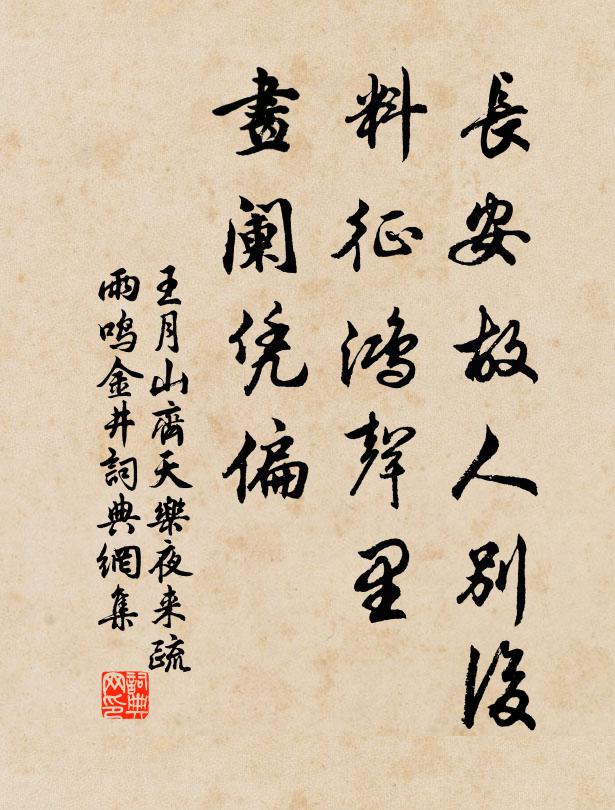 長安故人別後
料征鴻聲里
畫闌凭偏
王月山齊天樂夜来疏
雨鳴金井詞典網集
詞典
网印